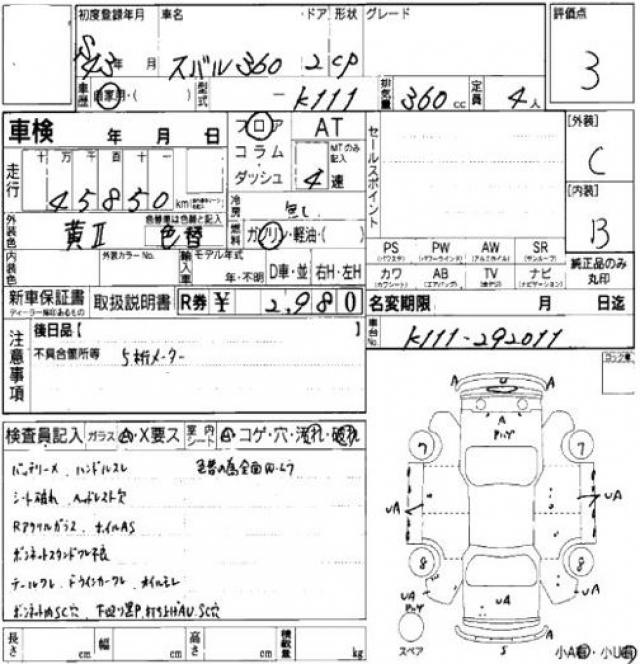 初度登録年月 車名 ドア 形状 グレード 評価点
S43年 月 スバル360 2 CP 3
車歴 自家用・( ) 型式 ー K111 排気量 360cc 定員 4人
車検 年 月 日 フロア AT セールスポイント [外装]
走行 十 万 千 百 十 一 コラム・ MTのみ記入 C
45850km ダッシュ 4速
冷房 無し [内装]
外装色 黄II 色替車は色替と記入 色替 燃料 ガソリン・軽油・( ) B
内装色 外装カラーNo. 輸入車 モデル年式 PS PW AW SR
(パワステ) (パワーウインド) (アルミホイル) (サンルーフ) 純正品のみ丸印
年・不明 D車・並 右H・左H カワ AB TV ナビ
(カワシート) (エアバッグ) (ナビゲーション)
新車保証書 取扱説明書 R券 ¥ 2,980 名変期限 月 日迄
ディーラー捺印あるもの
車台No. K111-292011
注意事項 後日品【 】
不具合箇所等 5桁メーター
検査員記入 ガラス A・X要ス 室内シート A・コゲ・穴・汚れ・破れ
バッテリーメ、ハンドルスレ 色替の為全面W-L7
シート破れ、ヘッドレスト穴
Rアクリルガラス、ホイルAS
ボンネットスタンドフレ不良
テールワレ、ウインカーワレ、オイルモレ
ボンネット内SC穴 下回り
長さ cm 幅 cm 高さ cm 積載量 kg
A U A
A
7 7
UA UA
8 8
UA UA UA
スペア S 小A 小U